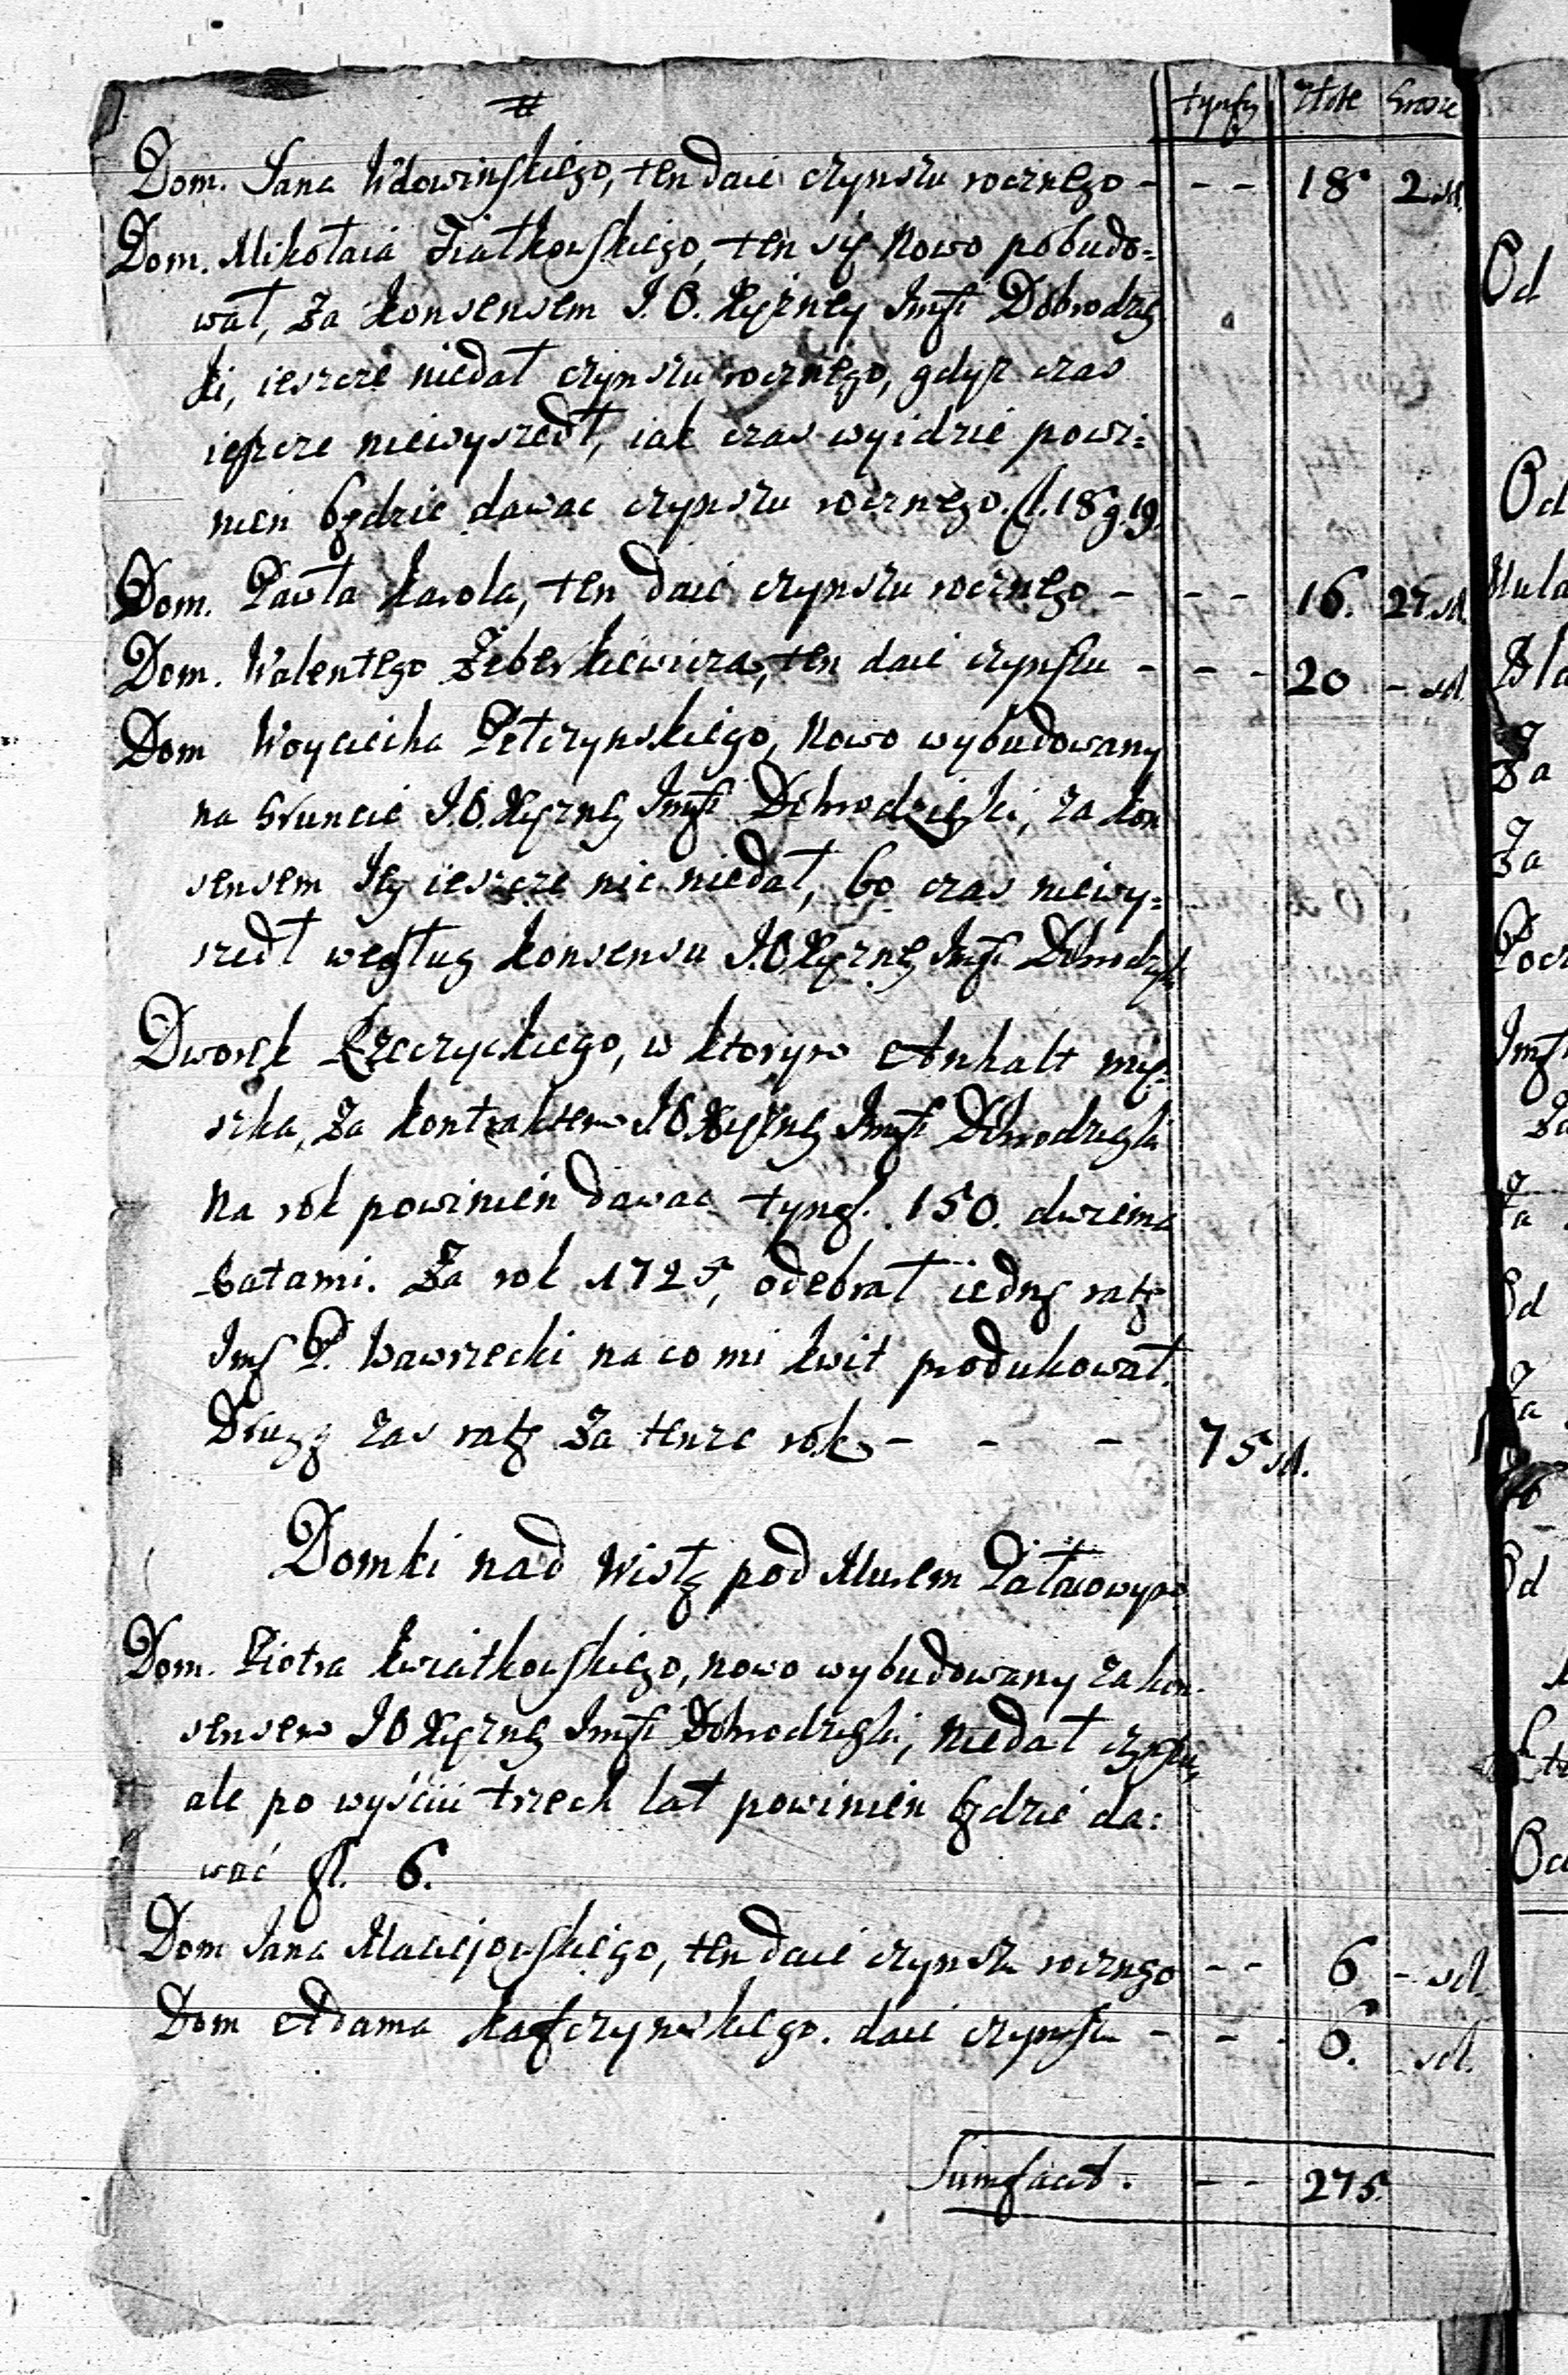 #
tynfy Złote Grosze
Dom. Jana Wdowinskiego, ten daie czynszu rocznego - - - 18. 2. sd.
Dom. Mikołaia Fiatkowskiego, ten się Nowo pobudo=
wał, Za Konsensem J. O. Xiężney Jmści Dobrodzey
ki, ieszcze niedał czynszu rocznego, gdyż czas
ieszcze niewyszedł, iak czas wyidzie powi=
nien będzie dawac czynszu rocznego. fl. 18 g. 19.
Dom. Pawła Karola, ten daie czynszu rocznego - - - 16. 27. sd.
Dom. Walentego Zeberkiewicza, ten daie czynszu - - - 20 - sd.
Dom Woyciecha Petczynskiego, Nowo wybudowany
na Gruncie J. O. Xiężney Jmści Dobrodzieyki, za kon
sensem Jey ieszcze nic niedał, bo czas niewy=
szedł według Konsensu J. O. Xiężney Jmści Dobrodzyki
Dworek Rzeczyckiego, w ktorym Anhalt mię=
szka, Za Kontraktem J O Xiężney Jmści Dobrodzieyki
Na rok powinien dawac tynf. 150. dwiema
Ratami. Za rok 1725, odebrał iedną ratę
Jmś P. Wawrzecki na co mi kwit produkował.
Drugą zas ratę Za tenze rok - - - 75 sd.
Domki nad Wisłą pod Murem Pałacowym
Dom. Piotra Kwiatkowskiego, nowo wybudowany za kon=
sensem J O Xiężney Jmści Dobrodzieyki, Niedał czynszu,
ale po wyściu trzech lat powinien będzie da:
wać fl. 6.
Dom Jana Maciejowskiego, ten daie czynszu rocznego - - 6 - sd.
Dom Adama Kafczynskiego. daie czynszu - - - 6. sd.
Summa facit. - - 275.
Od
Od
Za
Za
Za
Od
Za
Od